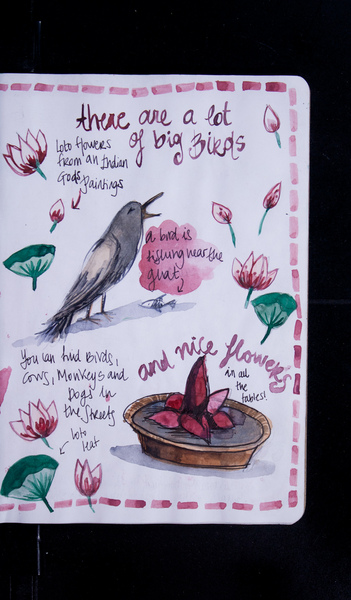 there are a lot
of big Birds
Loto flowers
from an Indian
Gods Paintings
a bird is
fishing near the
ghat
You can find Birds,
Cows, Monkeys and
Dogs in
the streets
and nice flowers
in all
the tables!
loto
leaf